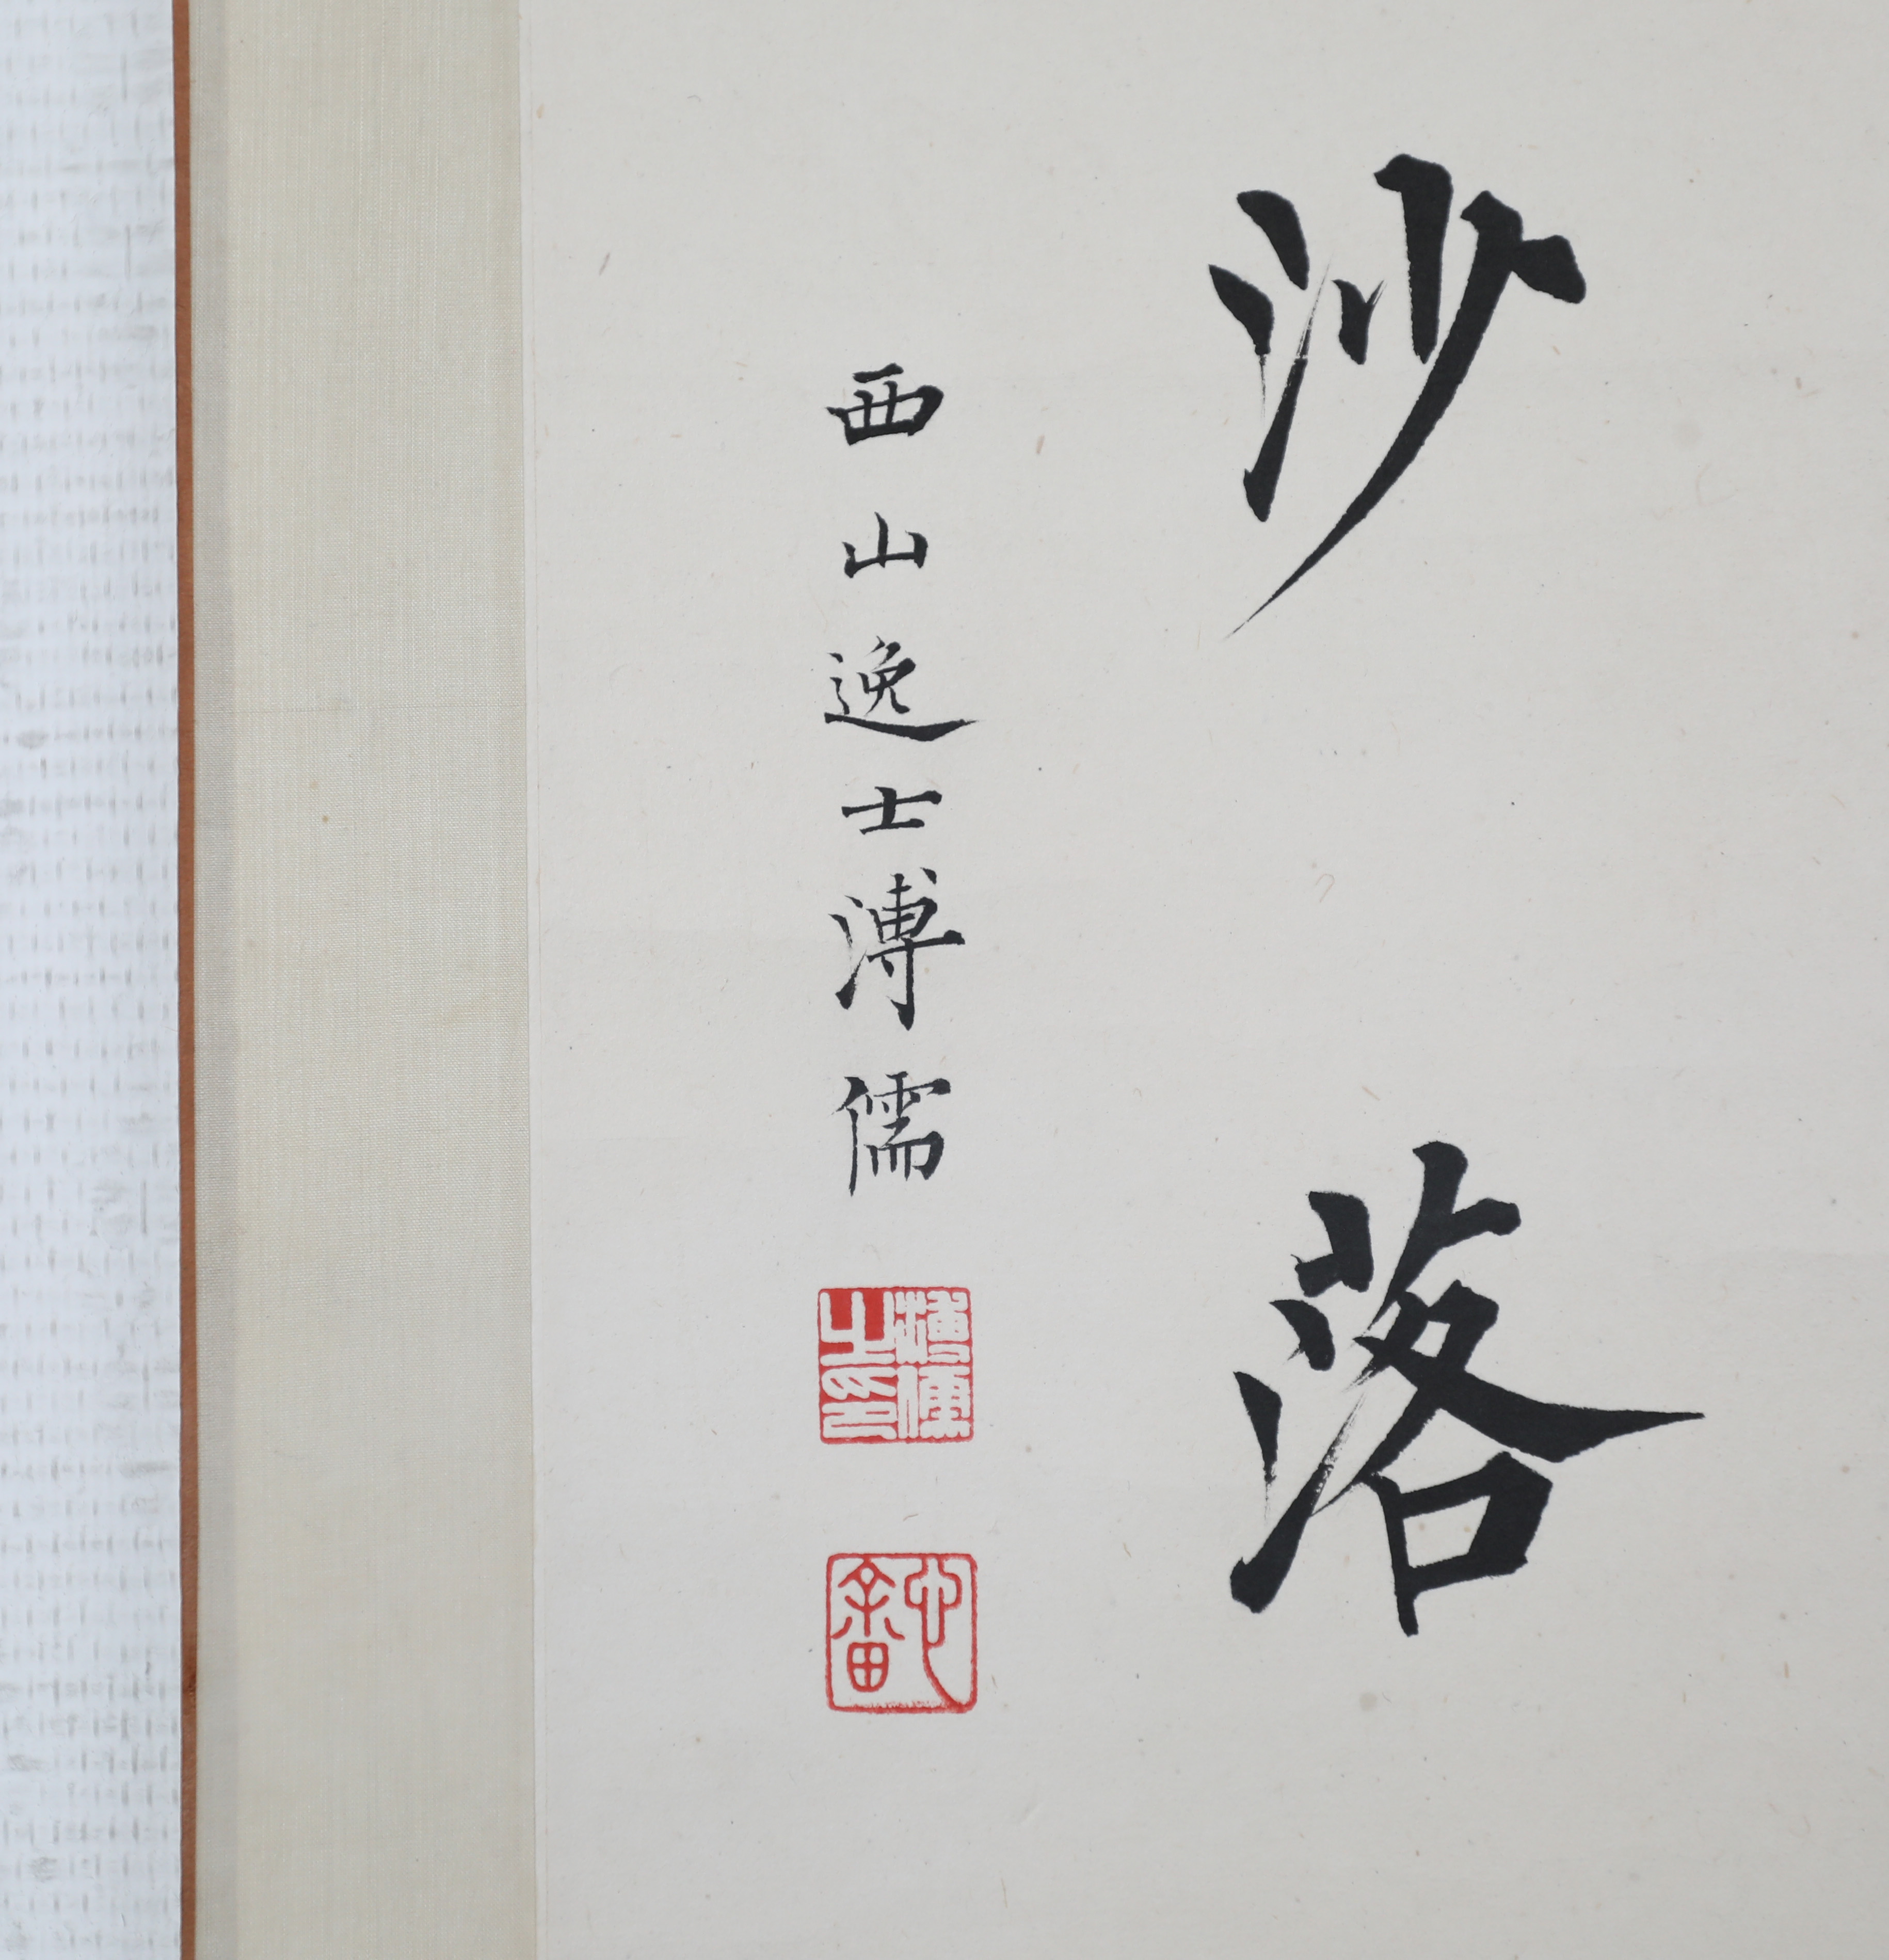 沙落
西山逸士溥儒
溥儒之印